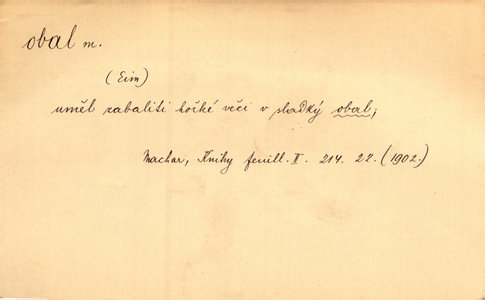 obal m.
(Eim)
uměl zabaliti hořké věci v sladký obal;
Machar, Knihy feuill. II. 214. 22. (1902.)